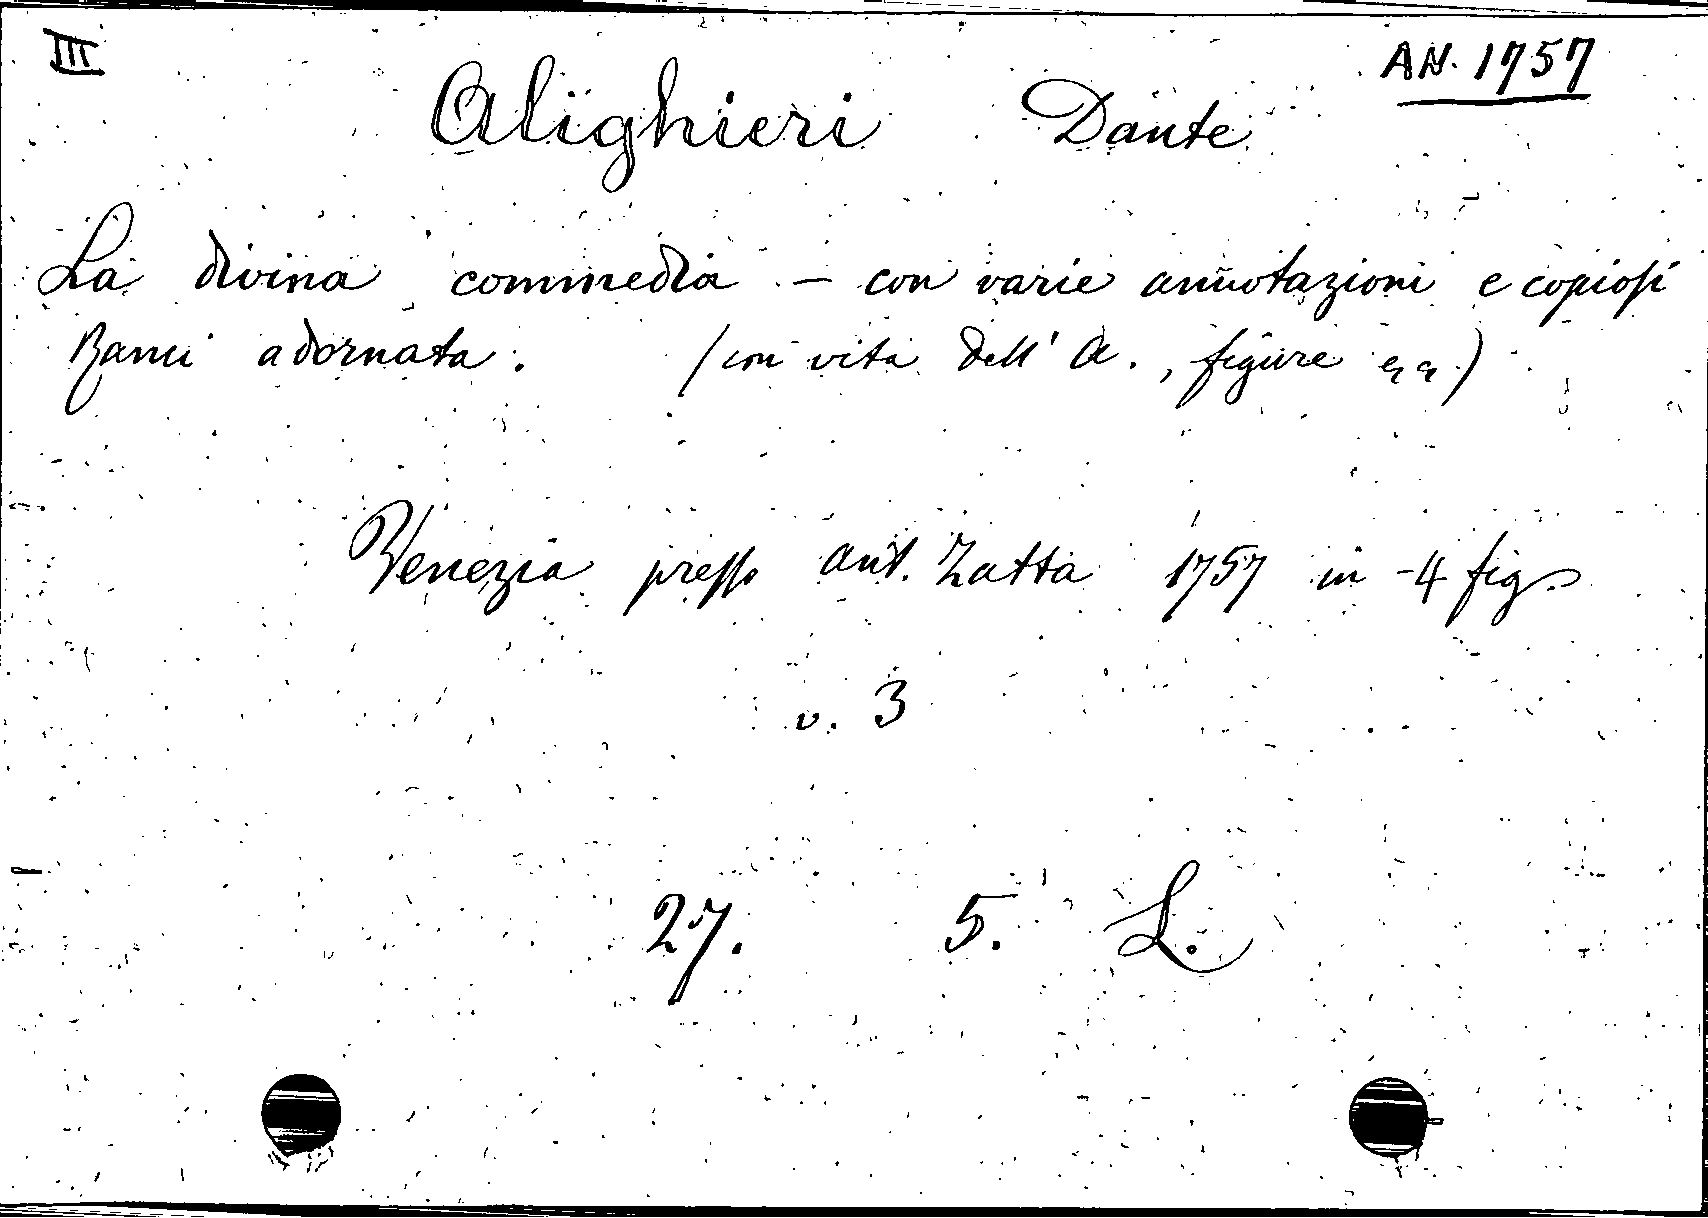 III
AN. 1757
Alighieri Dante
La divina commedia - con varie annotazioni e copiosi
Rami adornata. (con vita dell' A., figure
Venezia presso Ant. Zatta 1757 in -4 fig.
v. 3
27. 5. L.